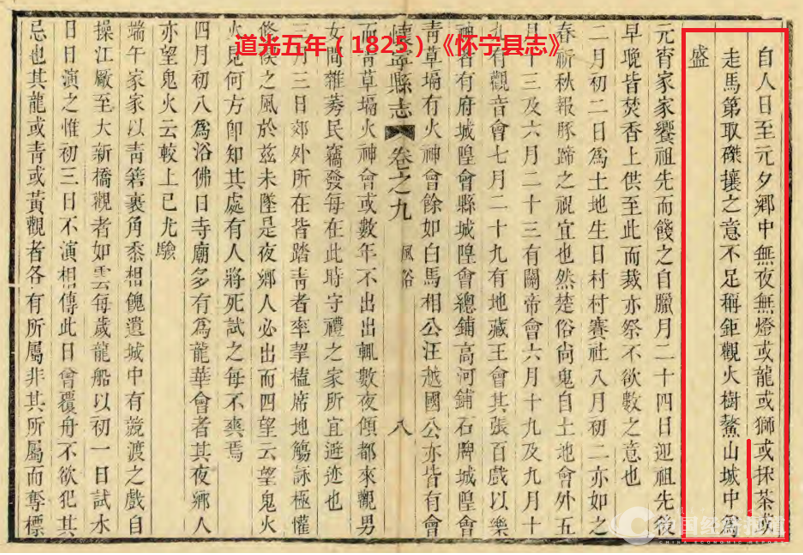 道光五年（1825）《怀宁县志》
自人日至元夕鄉中無夜無燈或龍或獅或採茶或
走馬第取磔攘之意不足稱鉅觀火樹鰲山城中爲
盛
元宵家家饗祖先而餞之自臘月二十四日迎祖先後
早晚皆焚香上供至此而裁亦祭不欲數之意也
二月初二日爲土地生日村村賽社八月初二亦如之
春祈秋報豚蹄之祝宜也然楚俗尚鬼自土地會外五
月十三及六月二十三有關帝會六月十九及九月十
九有觀音會七月二十九有地藏王會其張百戲以樂
神者有府城隍會縣城隍會總鋪高河鋪石牌城隍會
青草塥有火神會餘如白馬相公汪越國公亦皆有會
懷寧縣志 卷之九 風俗 八
而青草塥火神會或數年不出出輒數夜傾都來觀男
女間雜莠民竊發每在此時守禮之家所宜避迹也
三月三日郊外所在皆踏青者率挈榼席地觴詠極懽
修禊之風於兹未墜是夜鄉人必出而四望云望鬼火
火見何方卽知其處有人將死試之每不爽焉
四月初八爲浴佛日寺廟多有爲龍華會者其夜鄉人
亦望鬼火云較上巳尤驗
端午家家以青箬裹角黍相餽遺城中有競渡之戲自
操江厰至大新橋觀者如雲每歲龍船以初一日試水
日日演之惟初三日不演相傳此日曾覆舟不欲犯其
忌也其龍或青或黃觀者各有所屬非其所屬而奪標